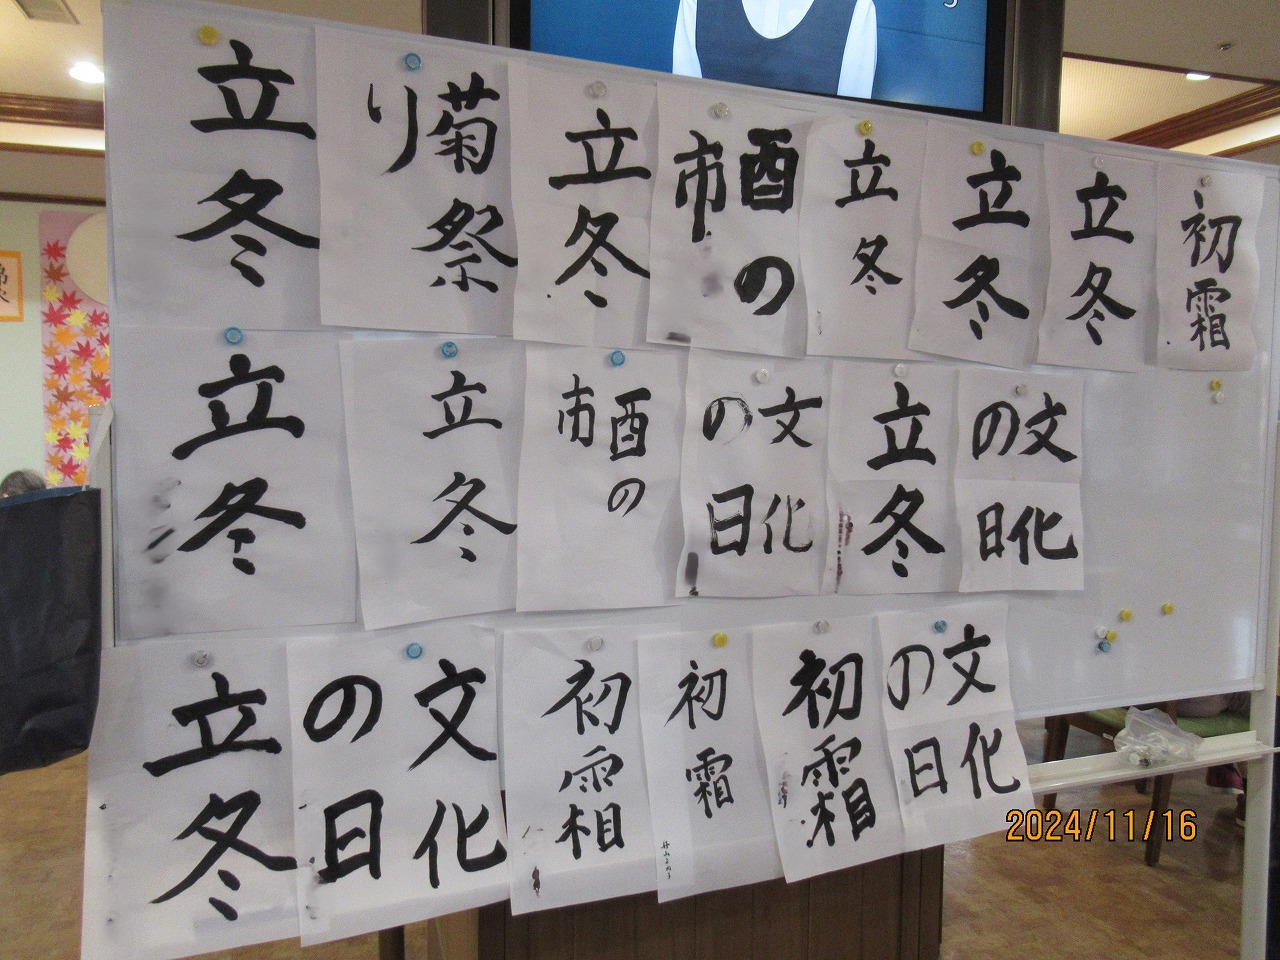 立冬
菊祭
り
立冬
酉の
市
立冬
立冬
立冬
初霜
立冬
立冬
酉の
市
文化
の日
立冬
文化
の日
立冬
文化
の日
初霜
初霜
初霜
文化
の日
2024/11/16